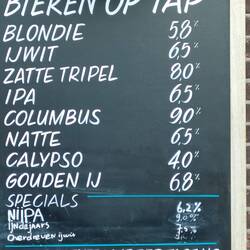 BIEREN OP TAP
BLONDIE 5,8%
IJWIT 6,5%
ZATTE TRIPEL 8,0%
IPA 6,5%
COLUMBUS 9,0%
NATTE 6,5%
CALYPSO 4,0%
GOUDEN IJ 6,8%
SPECIALS
NIIPA 6,2%
IJNDEJAARS 9,0%
Overdreven ijwis 7,5%